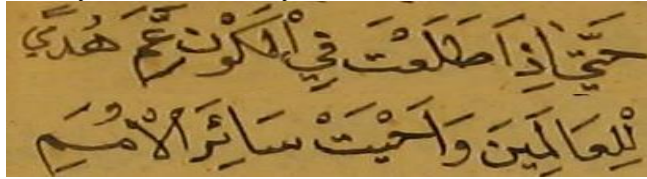 حَتَّى اِذَا طَلَعَتْ فِي الْكَوْنِ عَمَّ هُدَى
لِلْعَالَمِينَ وَاَحْيَتْ سَائِرَ الْاُمَمِ